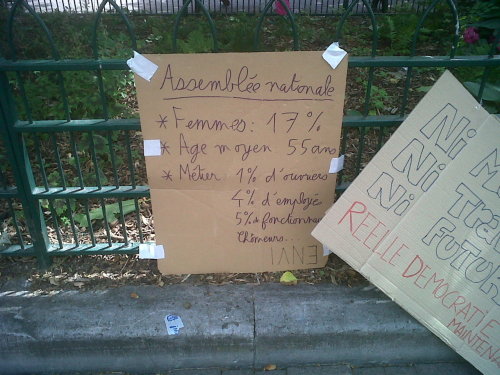 Assemblée nationale
* Femmes: 17%
* Age moyen 55 ans
* Métier: 1% d'ouvriers
4% d'employé
5% de fonctionnai
Chômeurs...
ENVI
Ni
Ni Tra
Ni FUTUR
REELLE DEMOCRATIE
MAINTEN